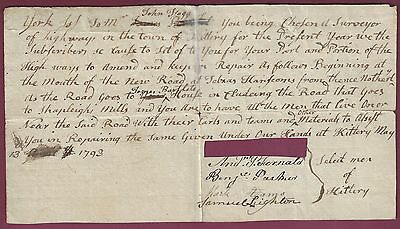 John Fogg
York Ss To Mr You being Chosen a Surveyor
of Highways in the town of Kittery for the Present Year we the
Subscribers se Cause to Set of to You for Your Part and Portion of the
High ways to Amend and Keep in Repair As follows Beginning at
the Mouth of the New Road at Tobias Hanscoms thence Notherd
James Bartlets
As the Road Goes to House in Cluding the Road that Goes
to Shapleigh Mills and You Are to have All the Men that Live Over
Near the Said Road With their Carts and teams and Material to Assist
You in Repairing the Same Given Under Our Hands at Kittery May
13 1793
Fernald
Benja Parker
Mark
Samuel Leighton
Select men
of
Kittery